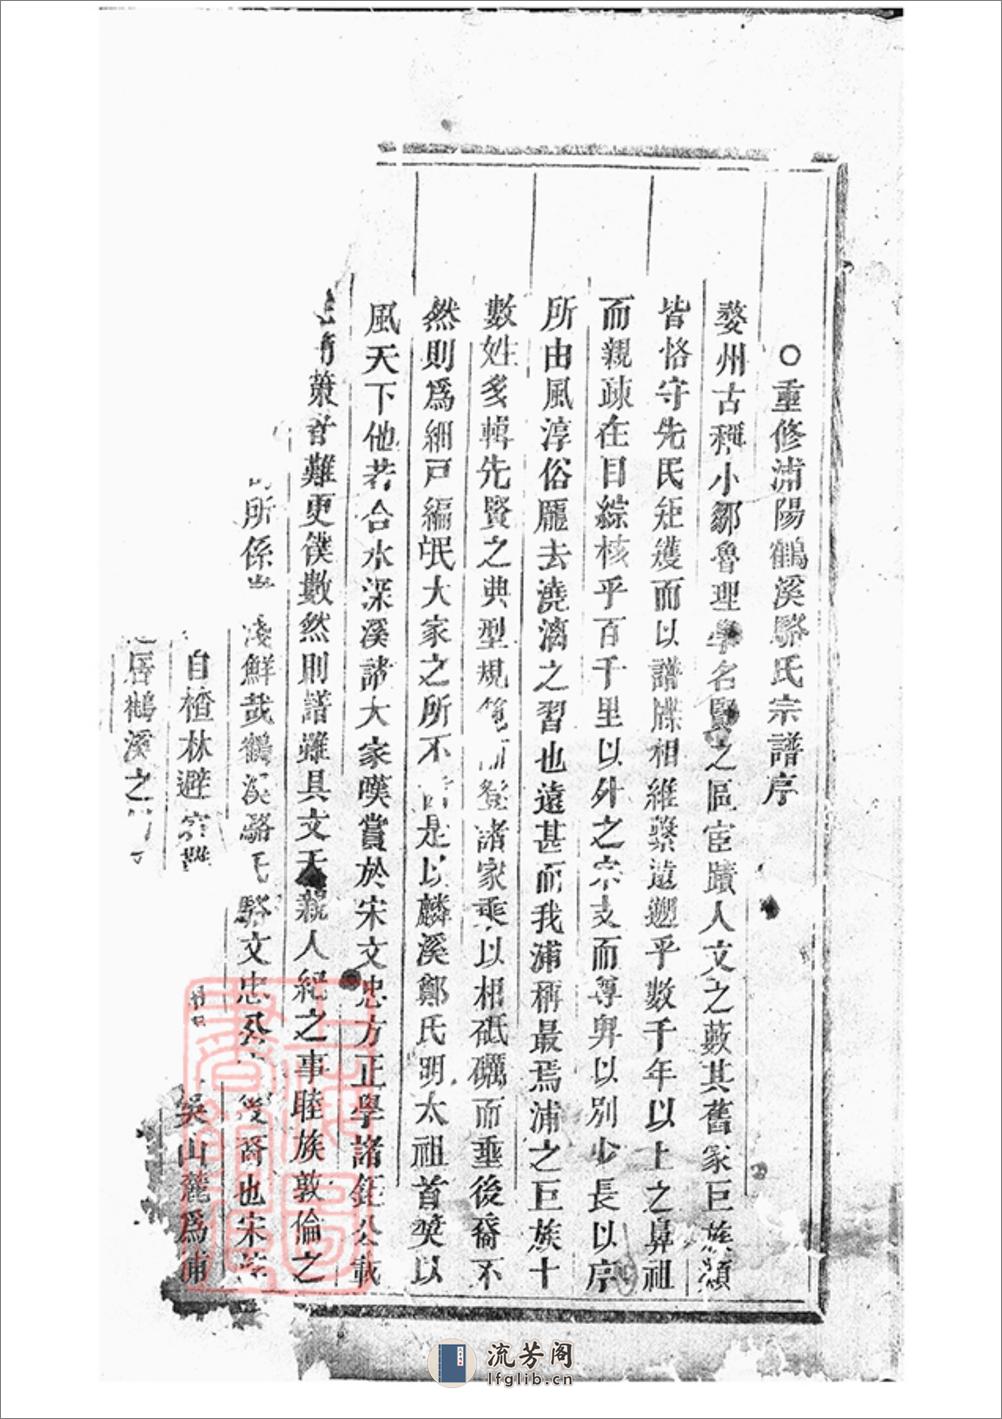 〇重修浦陽鶴溪駱氏宗譜序
婺州古稱小鄒魯理學名賢之區宦蹟人文之藪其舊家巨族類
皆恪守先民矩矱而以譜牒相維繫遠遡乎數千年以上之鼻祖
而親疎在目綜核乎百千里以外之宗支而尊卑以別少長以序
所由風淳俗龎去澆漓之習也遠甚而我浦稱最焉浦之巨族十
數姓多輯先賢之典型規範諸家乘以相砥礪而垂後裔不
然則爲細戸編氓大家之所不是以麟溪鄭氏明太祖首奬以
風天下他若合水深溪諸大家嘆賞於宋文忠方正學諸鉅公載
難更僕數然則譜雖具文天親人紀之事睦族敦倫之
所係淺鮮哉鶴溪駱氏駱文忠後裔也宋
自楂林避吳山麓爲浦
居鶴溪之
流芳阁
lfglib.cn